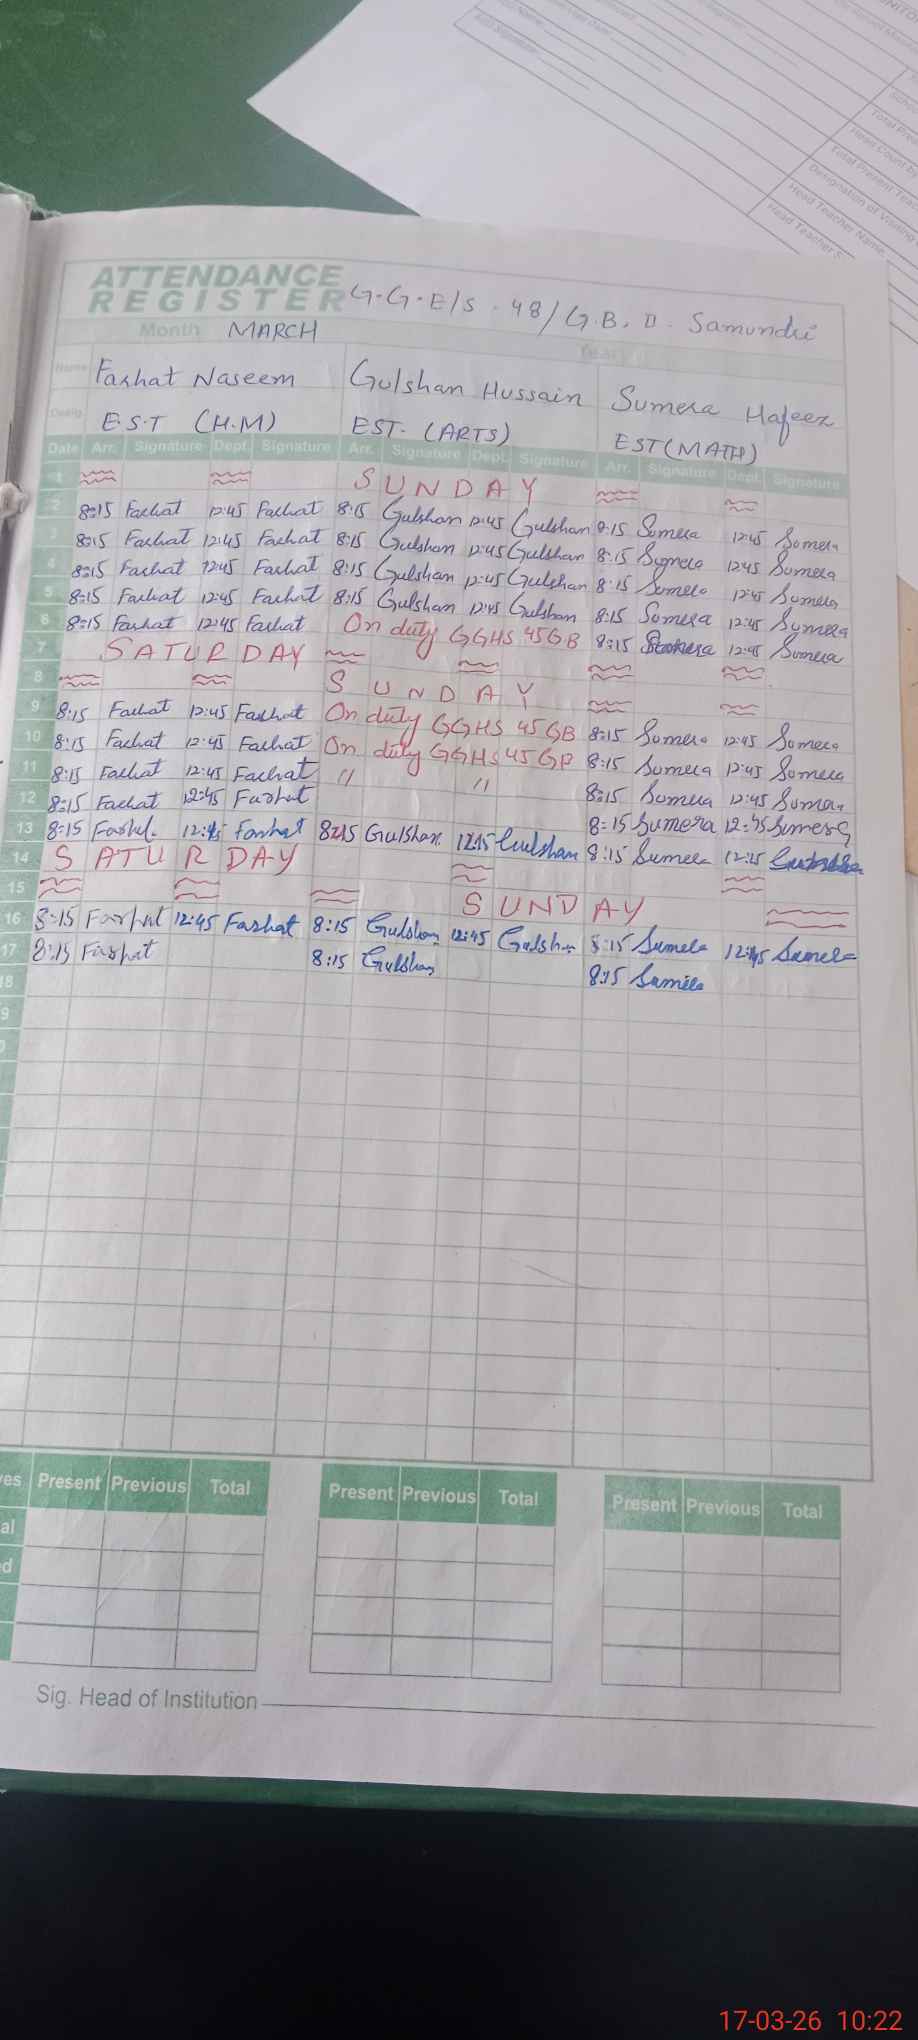 ATTENDANCE
REGISTER G.G.E/S. 48/G.B, D. Samundri
Month MARCH Year
Name Farhat Naseem Gulshan Hussain Sumera Hafeez
Desig. E.S.T (H.M) EST. (ARTS) EST (MATH)
Date Arr. Signature Dept. Signature Arr. Signature Dept. Signature Arr. Signature Dept. Signature
1 SUNDAY
2 8:15 Farhat 12:45 Farhat 8:15 Gulshan 12:45 Gulshan 8:15 Sumera 12:45 Sumera
3 8:15 Farhat 12:45 Farhat 8:15 Gulshan 12:45 Gulshan 8:15 Sumera 12:45 Sumera
4 8:15 Farhat 12:45 Farhat 8:15 Gulshan 12:45 Gulshan 8:15 Sumera 12:45 Sumera
5 8:15 Farhat 12:45 Farhat 8:15 Gulshan 12:45 Gulshan 8:15 Sumera 12:45 Sumera
6 8:15 Farhat 12:45 Farhat On duty GGHS 45GB 8:15 Sumera 12:45 Sumera
7 SATURDAY
8 SUNDAY
9 8:15 Farhat 12:45 Farhat On duty GGHS 45 GB 8:15 Sumera 12:45 Sumera
10 8:15 Farhat 12:45 Farhat On duty GGHS 45 GB 8:15 Sumera 12:45 Sumera
11 8:15 Farhat 12:45 Farhat " " 8:15 Sumera 12:45 Sumera
12 8:15 Farhat 12:45 Farhat 8:15 Sumera 12:45 Sumera
13 8:15 Farhat 12:45 Farhat 8:15 Gulshan 12:15 Gulshan 8:15 Sumera 12:15
14 SATURDAY
15 SUNDAY
16 8:15 Farhat 12:45 Farhat 8:15 Gulshan 12:45 Gulshan 8:15 Sumera 12:45 Sumera
17 8:15 Farhat 8:15 Gulshan 8:15 Sumera
18
Present Previous Total Present Previous Total Present Previous Total
Sig. Head of Institution
Total Present Tea
Designation of Visiting
Head Teacher Name
Head Teacher S
17-03-26 10:22